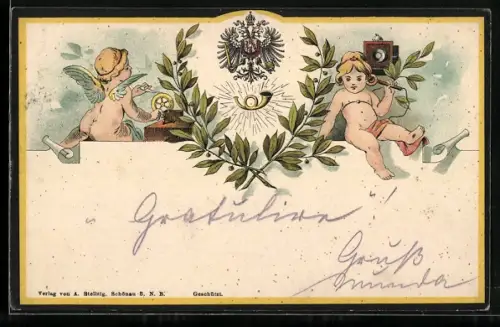 Gratulire
Gruß
Verlag von A. Stelbig, Schönau B. N. B. Geschützt.